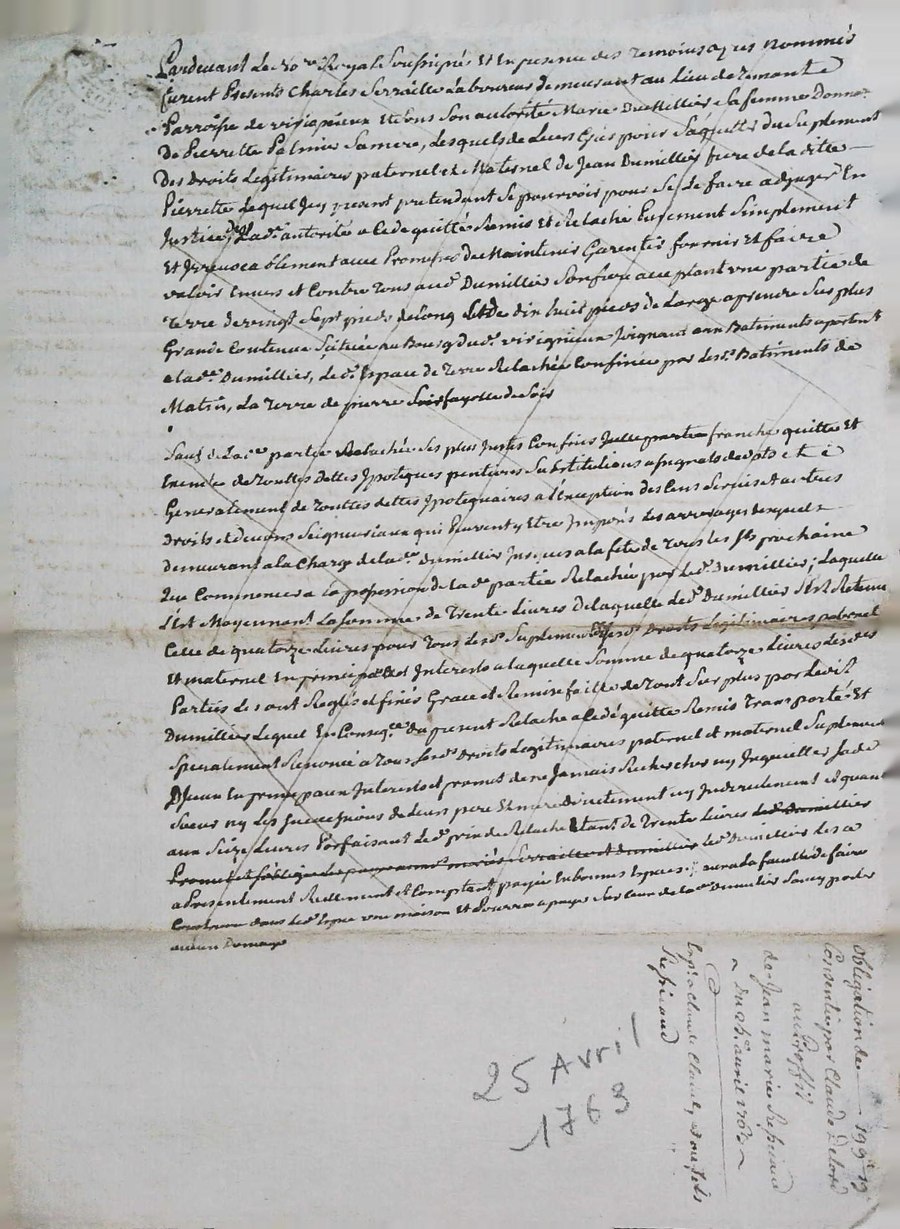 Pardevant Le No.re Royal Soussigné Et En presence des Temoins apres Nommés
furent Presents Charles Serraille Laboureur demeurant au lieu de
Parroisse de virigneux Et sous Son autorité Marie Dumillier Sa femme Donna.re
De Pierrette Palmier Sa mere, Lesquels de Leurs Grés pour Saquitter du Suplement
Des Droits Legitimaires paternel et Maternel de Jean Dumillier frere de la ditte
Pierrette Lequel pretendant Se pourvoir pour Se Le faire adjuger En
Justice, autorité a Cedé quitté Remis Et Relaché Purement Simplement
Et Irrevocablement avec Promesse de Maintenir Garentir fournir Et faire
valoir Envers et Contre Tous aud. Dumillier Son frere acceptant une partie de
Terre de vingt Sept pieds de Long Et de dix huit pieds de Large a prendre Sur plus
Grande Contenue Scituée au Bourg dud. virigneux Joignant aux Batiments apartent
alad. Dumillier, Led. Espace de Terre Relachée Confinée par Les d. Batiments de
Matin, La Terre de pierre fayolle de Soir
Sauf de La d. partie Relachée Ses plus Justes Confins franche quitte Et
Exempte de Touttes Dettes Ipoteques pentions Substitutions
Generalement de Touttes dettes Ipotequaires a l'Exception des Cens Servis Et autres
Droits et devoirs Seigneuriaux qui Peuvent y Etre Imposés Les arrerages desquels
demeurant a la Charge de lad. Dumillier Jusques a la fete de Tous les Sts prochaine
Que Commencera la possession de la d. partie Relachée par Led. Dumillier; Laquelle
S'est Moyennant La Somme de Trente Livres De laquelle Led. Dumillier S'est Retenu
Celle de quatorze Livres pour Tous Les d. Suplement Droits Legitimaires paternel
Et maternel En principal Et Interests a laquelle Somme de quatorze Livres Lesdtes
Parties Les ont Reglés et finés Grace et Remise faitte de Tout Surplus par Ledit
Dumillier Lequel En Conseq.ce du present Relache a Cedé quitté Remis Transporté Et
Specialement Renoncé a Tous Ses d. Droits Legitimaires paternel et maternel Suplement
D'Iceux En principaux Interests et promet de ne Jamais Rechercher ny Inquietter Sade
Soeur ny Les Successeurs de Leurs pere Et mere directement ny Indirectement et quant
aux Seize Livres Parfaisant Led. prix de Relache Etant de Trente Livres Led. Dumillier
Promet et S'oblige Serraille et Dumillier Led. Dumillier Les a
a Presentement Reellement et Comptant payée En bonnes Especes; aura la faculté de faire
Construire dans Led. Espace une maison Et Pourra apuyer Sur Ceux de la d. Dumillier Sans y porter
aucun Domage
Obligation de 199 19
Consentie par Claude Delord
au Proffit
de Jean marie Pupicaud
Du 25.e avril 1763
Claude
25 Avril
1763